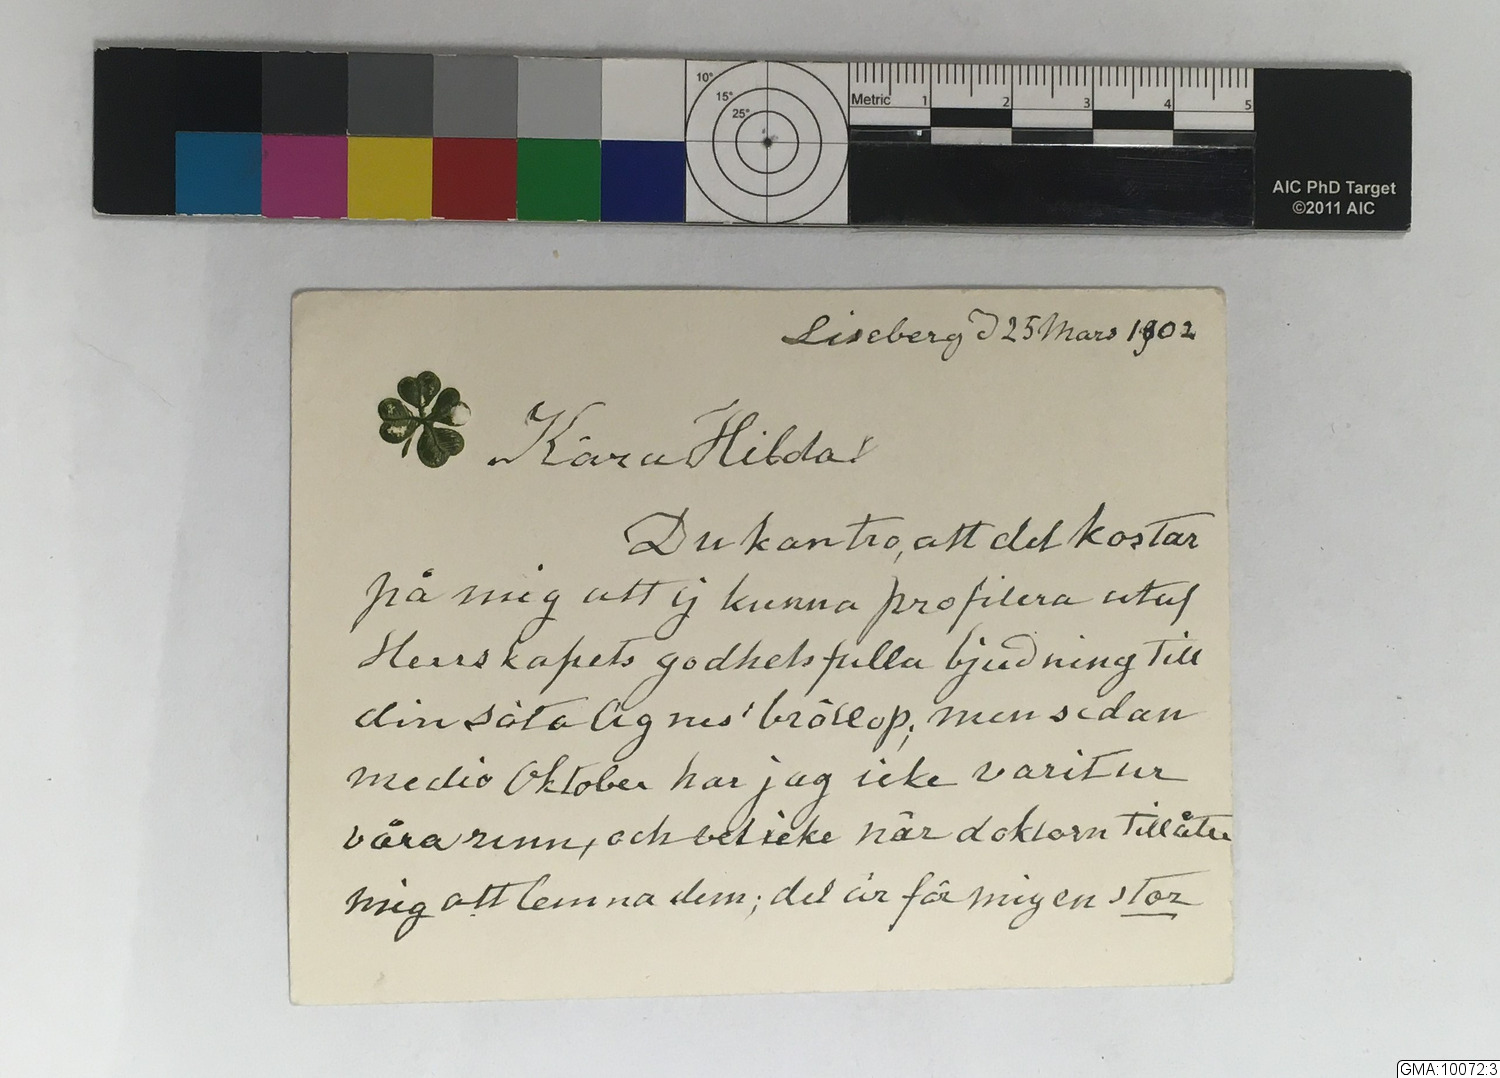 10°
15°
25°
Metric 1 2 3 4 5
AIC PhD Target
©2011 AIC
Liseberg d 25 Mars 1902
Kära Hilda!
Du kan tro, att det kostar
på mig att ej kunna profitera utaf
Herrskapets godhetsfulla bjudning till
din söta Agnes' bröllop, men sedan
medio Oktober har jag icke varit ur
våra rum, och vet icke när doktorn tillåter
mig att lemna dem; det är för mig en stor
GMA:10072:3